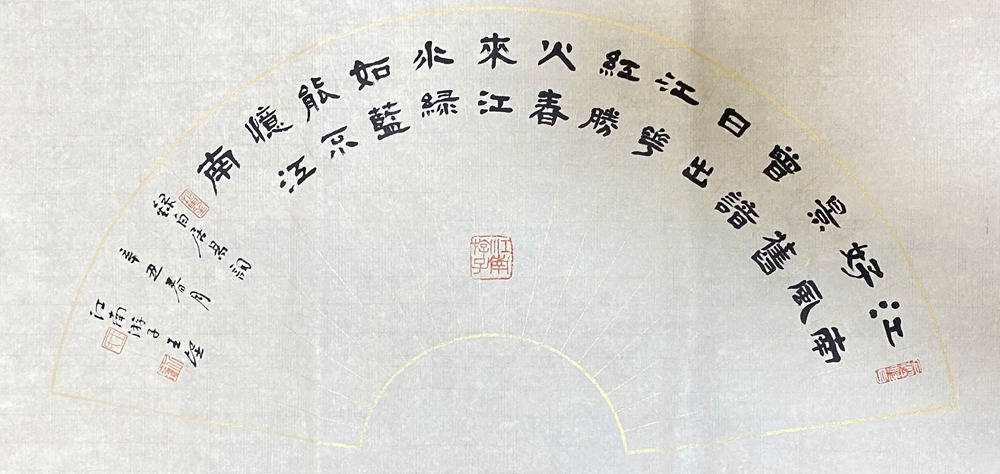 江南
好風
景舊
曾諳
日出
江華
紅勝
火春
來江
水緑
如藍
能不
憶江
南
録白居易詞
辛丑春月
江南游子王
江南游子